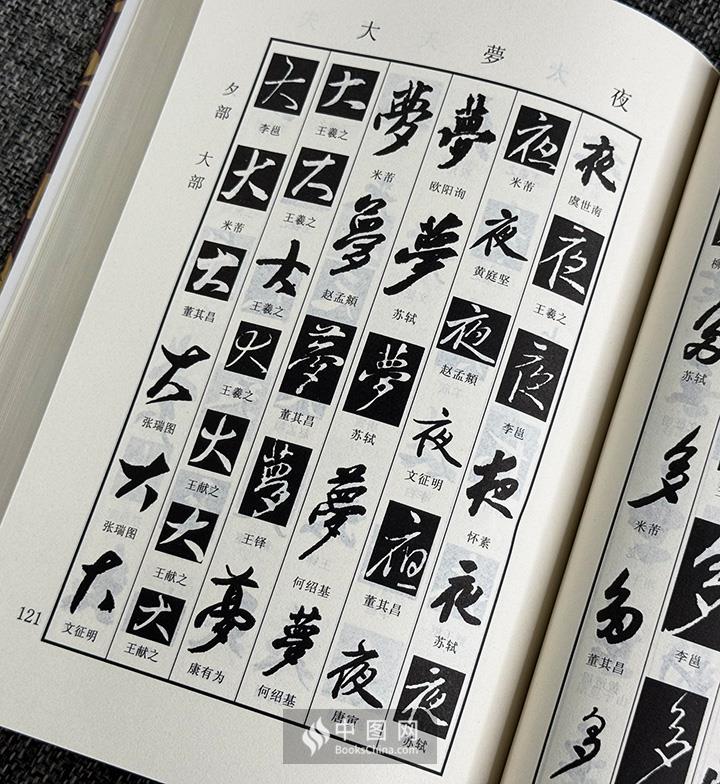 夜
夢
大
夕部
大部
夜
虞世南
夜
王羲之
夜
李邕
夜
怀素
夜
苏轼
夜
苏轼
夜
米芾
夜
黄庭坚
夜
赵孟頫
夜
文征明
夜
董其昌
夜
唐寅
夢
欧阳询
夢
苏轼
夢
苏轼
夢
何绍基
夢
何绍基
夢
米芾
夢
赵孟頫
夢
董其昌
夢
王铎
夢
康有为
大
王羲之
大
王羲之
大
王羲之
大
王羲之
大
王献之
大
王献之
大
王献之
大
李邕
大
米芾
大
董其昌
大
张瑞图
大
张瑞图
大
文征明
121
苏轼
多
米芾
多
董其昌
多
多
李邕
多
中图网
BooksChina.com